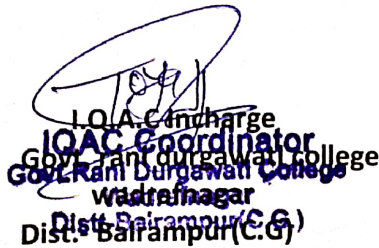 I.Q.A.C Incharge
IQAC Coordinator
Govt. rani durgawati college
Govt. Rani Durgawati College
wadrefnagar
Dist.- Balrampur(C.G)
Distt.-Balrampur(C.G.)